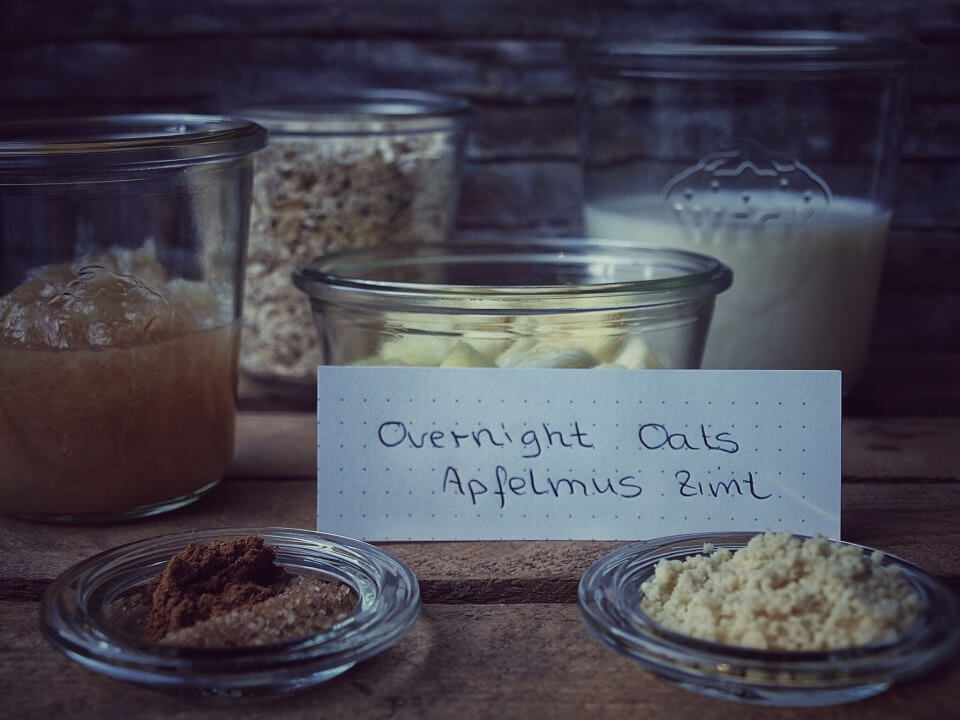 WECK
Overnight Oats
Apfelmus Zimt